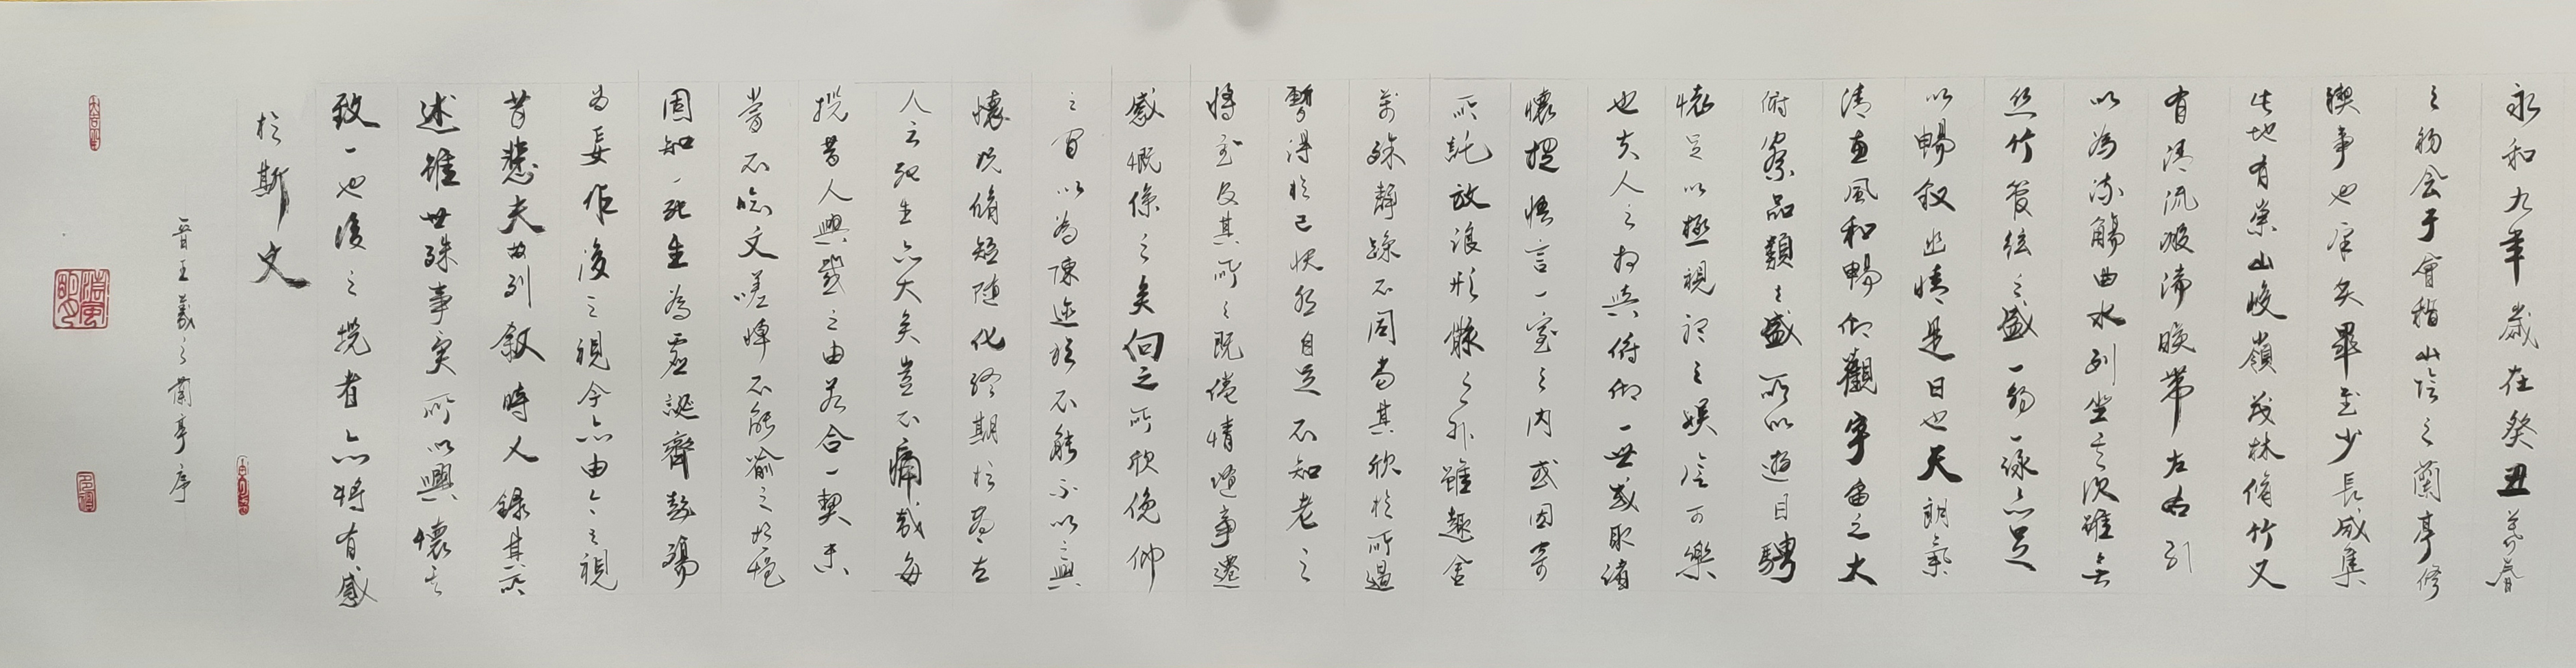 永和九年歲在癸丑暮春
之初会于會稽山陰之蘭亭修
禊事也羣賢畢至少長咸集
此地有崇山峻嶺茂林脩竹又
有清流激湍暎帶左右引
以為流觴曲水列坐其次雖無
丝竹管弦之盛一觴一詠亦足
以暢叙幽情是日也天朗氣
清惠風和暢仰觀宇宙之大
俯察品類之盛所以遊目騁
懷足以極視聽之娱信可樂
也夫人之相與俯仰一世或取諸
懷抱悟言一室之內或因寄
所託放浪形骸之外雖趣舍
萬殊靜躁不同當其欣於所遇
暫得於己快然自足不知老之
將至及其所之既倦情隨事遷
感慨係之矣向之所欣俛仰
之間以為陳迹猶不能不以之興
懷況脩短随化終期於盡古
人云死生亦大矣豈不痛哉每
攬昔人興感之由若合一契未
嘗不臨文嗟悼不能喻之於懷
固知一死生為虛誕齊彭殤
為妄作後之視今亦由今之視
昔悲夫故列叙時人錄其所
述雖世殊事異所以興懷其
致一也後之攬者亦將有感
於斯文
晋王羲之蘭亭序